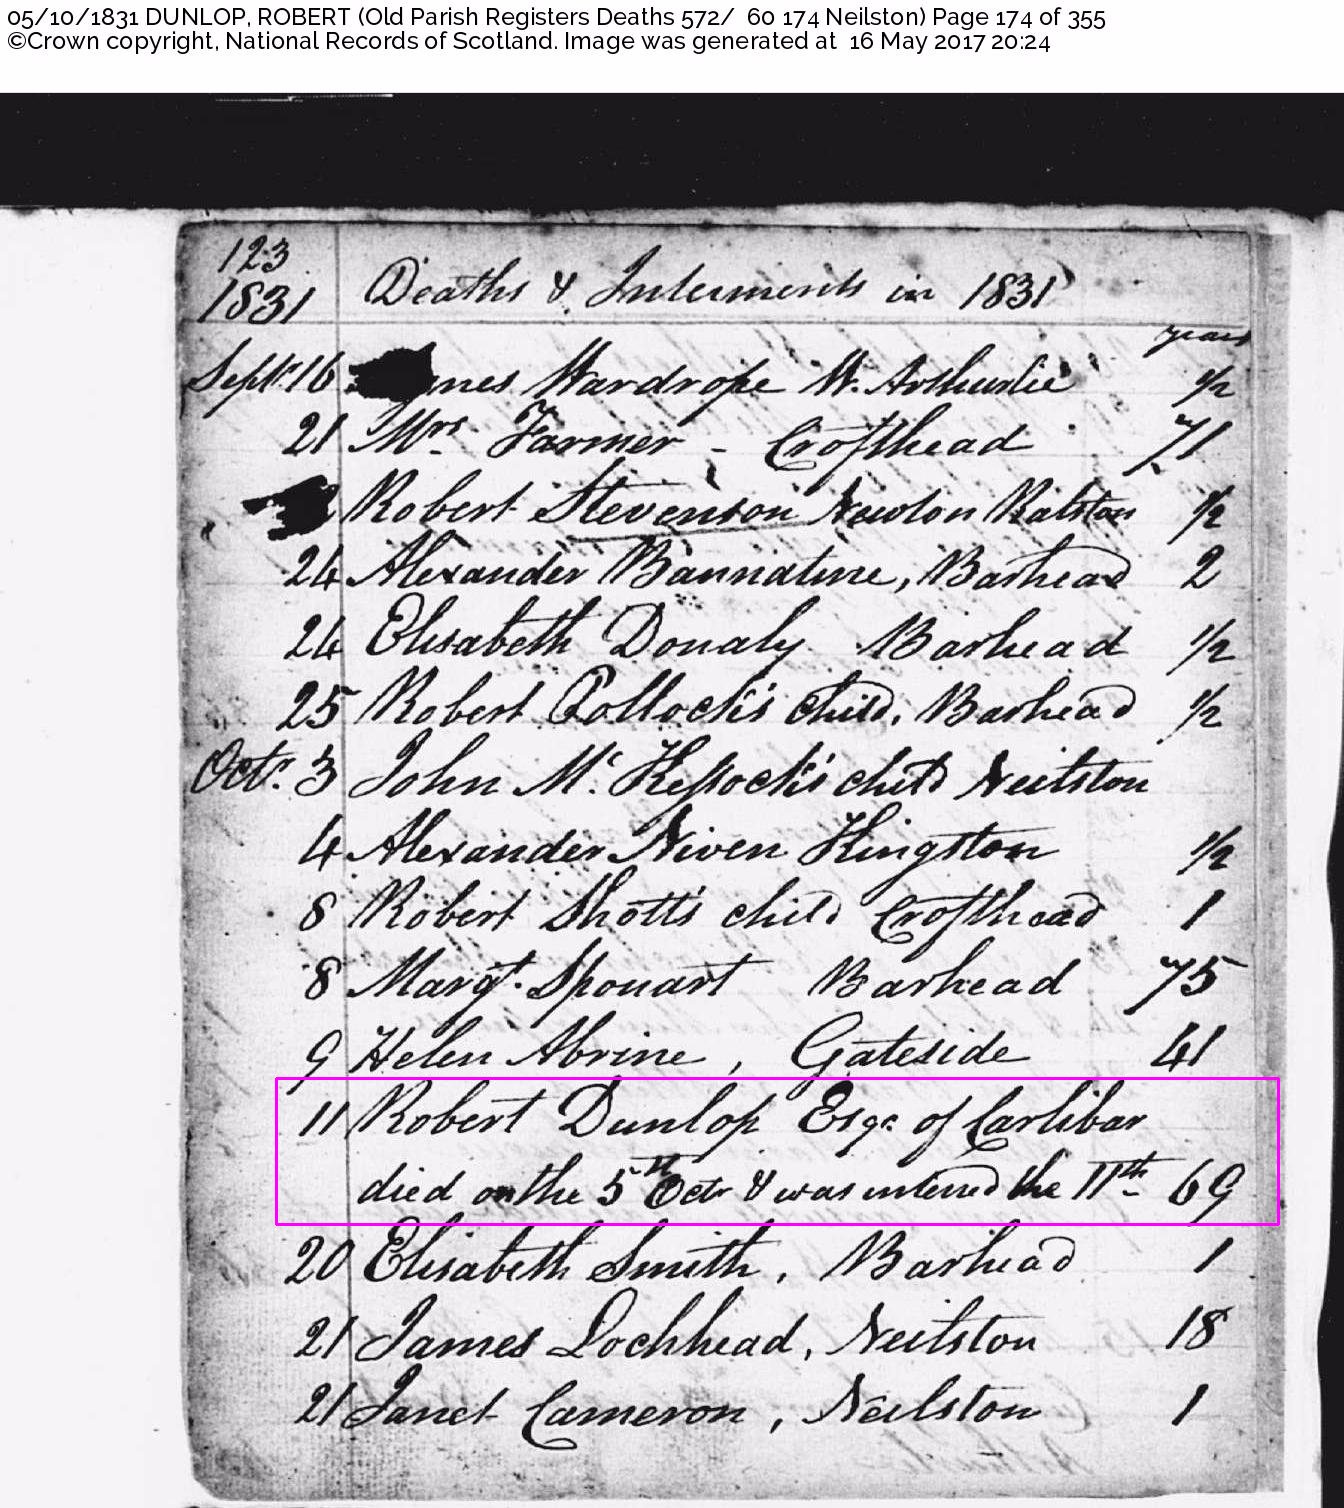 05/10/1831 DUNLOP, ROBERT (Old Parish Registers Deaths 572/ 60 174 Neilston) Page 174 of 355
©Crown copyright, National Records of Scotland. Image was generated at 16 May 2017 20:24
123
1831 Deaths & Interments in 1831
years
Septr. 16 Wardrope W. Arthurlie 1/2
21 Mrs. Farmer - Crofthead 71
Robert Stevenson Newton Ralston 1/2
24 Alexander Bannatine, Barhead 2
24 Elisabeth Donaly Barhead 1/2
25 Robert Pollock's child, Barhead 1/2
Octr. 3 John Mc. Kessock's child Neilston
4 Alexander Niven Kingston 1/2
8 Robert Shotts child Crofthead 1
8 Margt. Spouart Barhead 75
9 Helen Abrine, Gateside 41
11 Robert Dunlop Esqr. of Carlibar
died on the 5th Octr & was interred the 11th 69
20 Elisabeth Smith, Barhead 1
21 James Lochhead, Neilston 18
21 Janet Cameron, Neilston 1